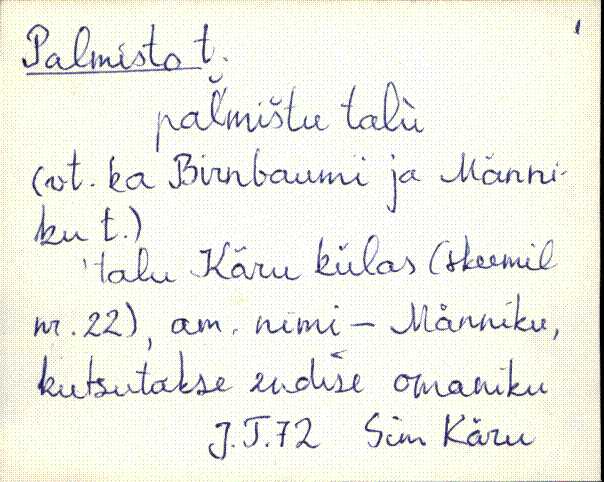 Palmisto t.
pal̆mištu talù
(vt. ka Birnbaumi ja Männi-
ku t.)
'talu Käru külas (skeemil
nr. 22), am. nimi – Männiku,
kutsutakse endise omaniku
J.T.72 Sim Käru